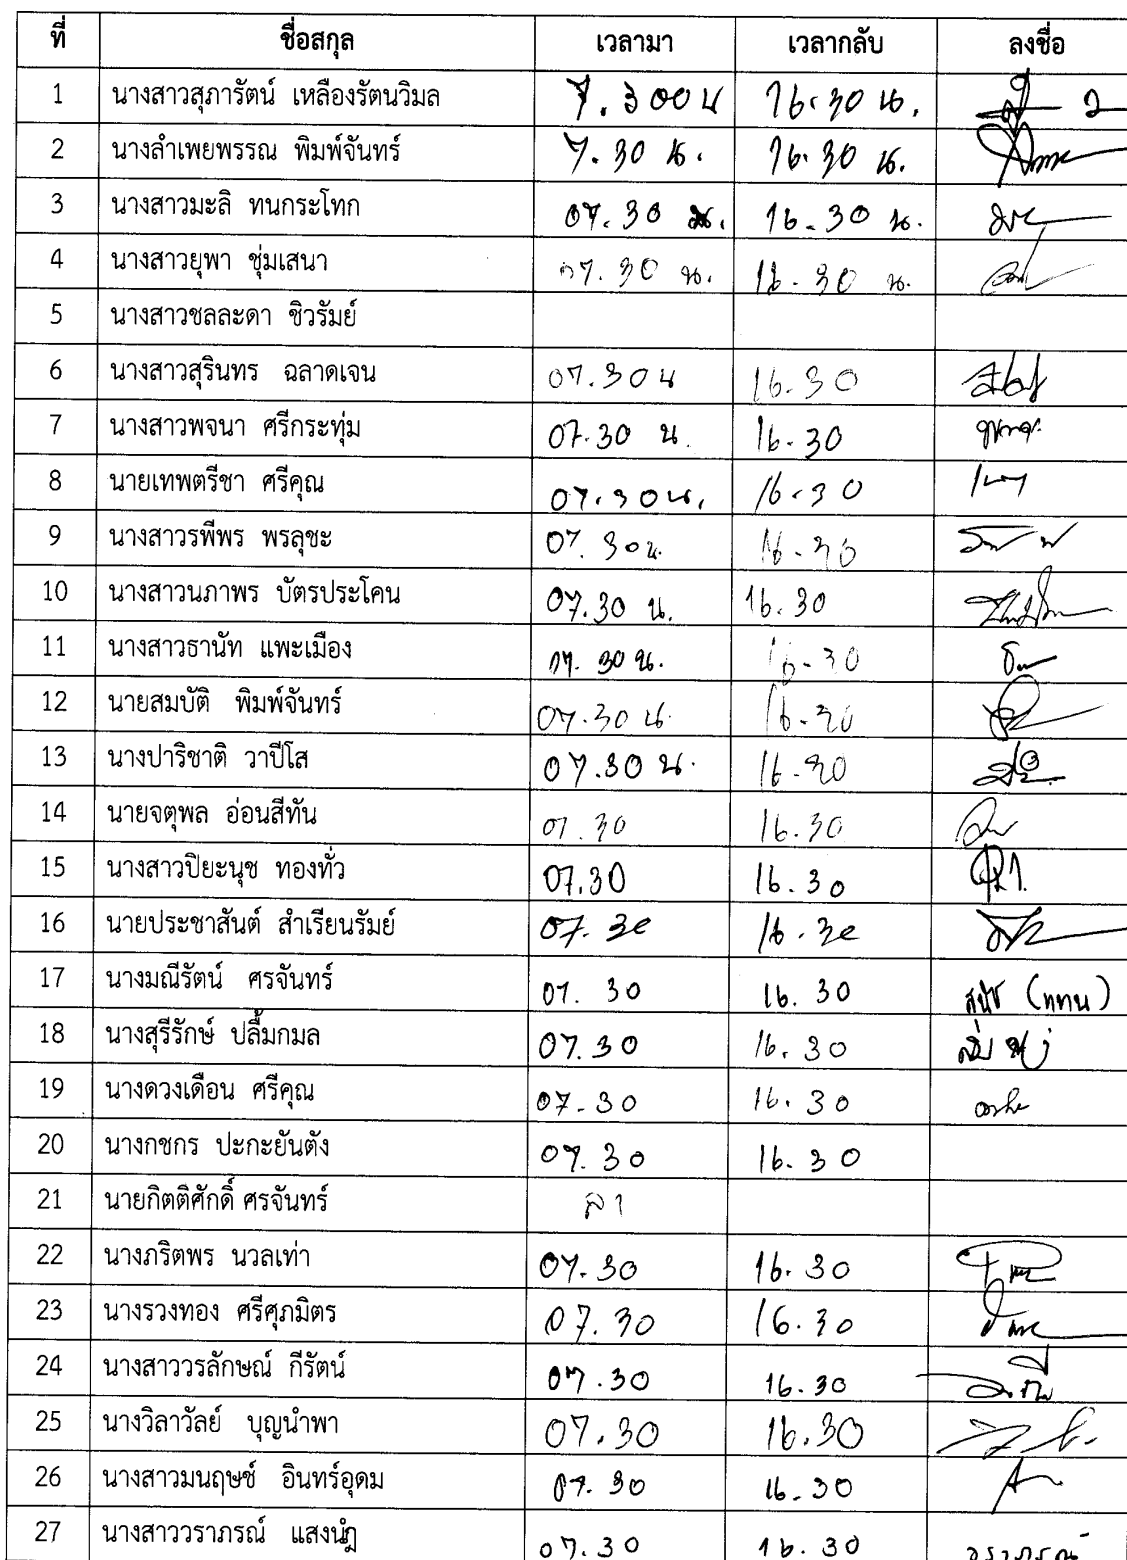 ที่ ชื่อสกุล เวลามา เวลากลับ ลงชื่อ
1 นางสาวสุภารัตน์ เหลืองรัตนวิมล 7.30 น 16.30 น.
2 นางลำเพยพรรณ พิมพ์จันทร์ 7.30 น. 16.30 น.
3 นางสาวมะลิ ทนกระโทก 07.30 น. 16.30 น.
4 นางสาวยุพา ชุ่มเสนา 07.30 น. 16.30 น.
5 นางสาวชลละดา ชิวรัมย์
6 นางสาวสุรินทร ฉลาดเจน 07.30 น 16.30
7 นางสาวพจนา ศรีกระทุ่ม 07.30 น. 16.30
8 นายเทพตรีชา ศรีคุณ 07.30 น. 16.30
9 นางสาวรพีพร พรลุชะ 07.30 น. 16.30
10 นางสาวนภาพร บัตรประโคน 07.30 น. 16.30
11 นางสาวธานัท แพะเมือง 07.30 น. 16.30
12 นายสมบัติ พิมพ์จันทร์ 07.30 น. 16.30
13 นางปาริชาติ วาปีโส 07.30 น. 16.30
14 นายจตุพล อ่อนสีทัน 07.30 16.30
15 นางสาวปิยะนุช ทองทั่ว 07.30 16.30
16 นายประชาสันต์ สำเรียนรัมย์ 07.30 16.30
17 นางมณีรัตน์ ศรจันทร์ 07.30 16.30 (แทน)
18 นางสุรีรักษ์ ปลื้มกมล 07.30 16.30
19 นางดวงเดือน ศรีคุณ 07.30 16.30
20 นางกชกร ปะกะยันตัง 07.30 16.30
21 นายกิตติศักดิ์ ศรจันทร์ ลา
22 นางภริตพร นวลเท่า 07.30 16.30
23 นางรวงทอง ศรีศุภมิตร 07.30 16.30
24 นางสาววรลักษณ์ กีรัตน์ 07.30 16.30
25 นางวิลาวัลย์ บุญนำพา 07.30 16.30
26 นางสาวมนฤษช์ อินทร์อุดม 07.30 16.30
27 นางสาววราภรณ์ 07.30 16.30 วราภรณ์